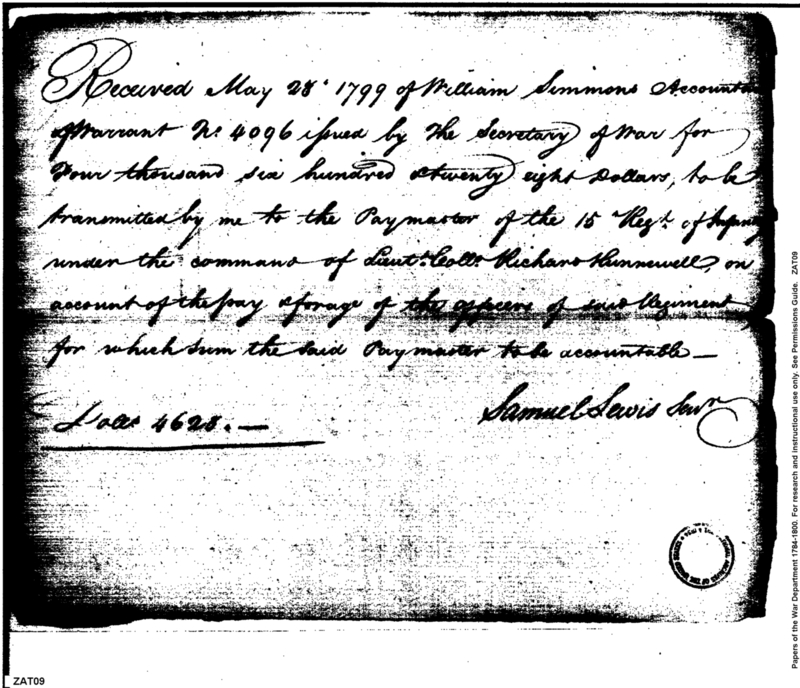 Received May 28. 1799 of William Simmons Accountant
of Warrant No. 4096 issued by the Secretary of War for
Four thousand six hundred & twenty eight Dollars, to be
transmitted by me to the Paymaster of the 15 Regt. of Infantry
under the command of Lieut. Coll. Richard Hunnewell, on
account of the pay & forage of the officers of said Regiment
for which sum the said Paymaster to be accountable —
Samuel Lewis Senr
Dolls 4628. —
Papers of the War Department 1784-1800. For research and instructional use only. See Permissions Guide. ZAT09
ZAT09